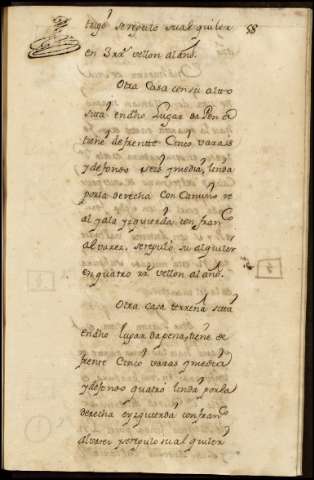 58
se regulo su alquiler
en 3 rs vellon al año.
Otra Casa con su alto
sita en dho Lugar da Pena
tiene de frentte Cinco varas
y de fondo seis y media, linda
por la derecha Con Camino re
al y yzquierda con franco
Alvarez, se regulo su alquiler
en quatro rs vellon al año.
Otra casa terrena sita
en dho lugar da pena, tiene de
frente Cinco varas y media
y de fondo quatro linda por la
derecha e yzquierda con franco
Alvarez y se regulo su alquiler